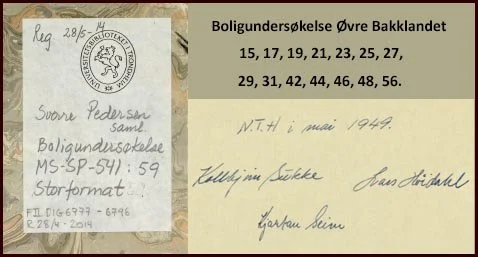 Reg. 28/5-14
UNIVERSITETSBIBLIOTEKET I TRONDHEIM
Sverre Pedersen
saml.
Boligundersøkelse
MS-SP-541 : 59
Storformat
FII DIG 6777 - 6796
R 28/4 - 2014
Boligundersøkelse Øvre Bakklandet
15, 17, 19, 21, 23, 25, 27,
29, 31, 42, 44, 46, 48, 56.
N.T.H i mai 1949.
Kolbjørn
Kjartan Seim